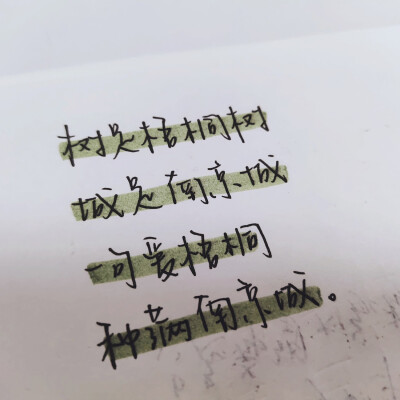 树是梧桐树
城是南京城
一句爱梧桐
种满南京城。